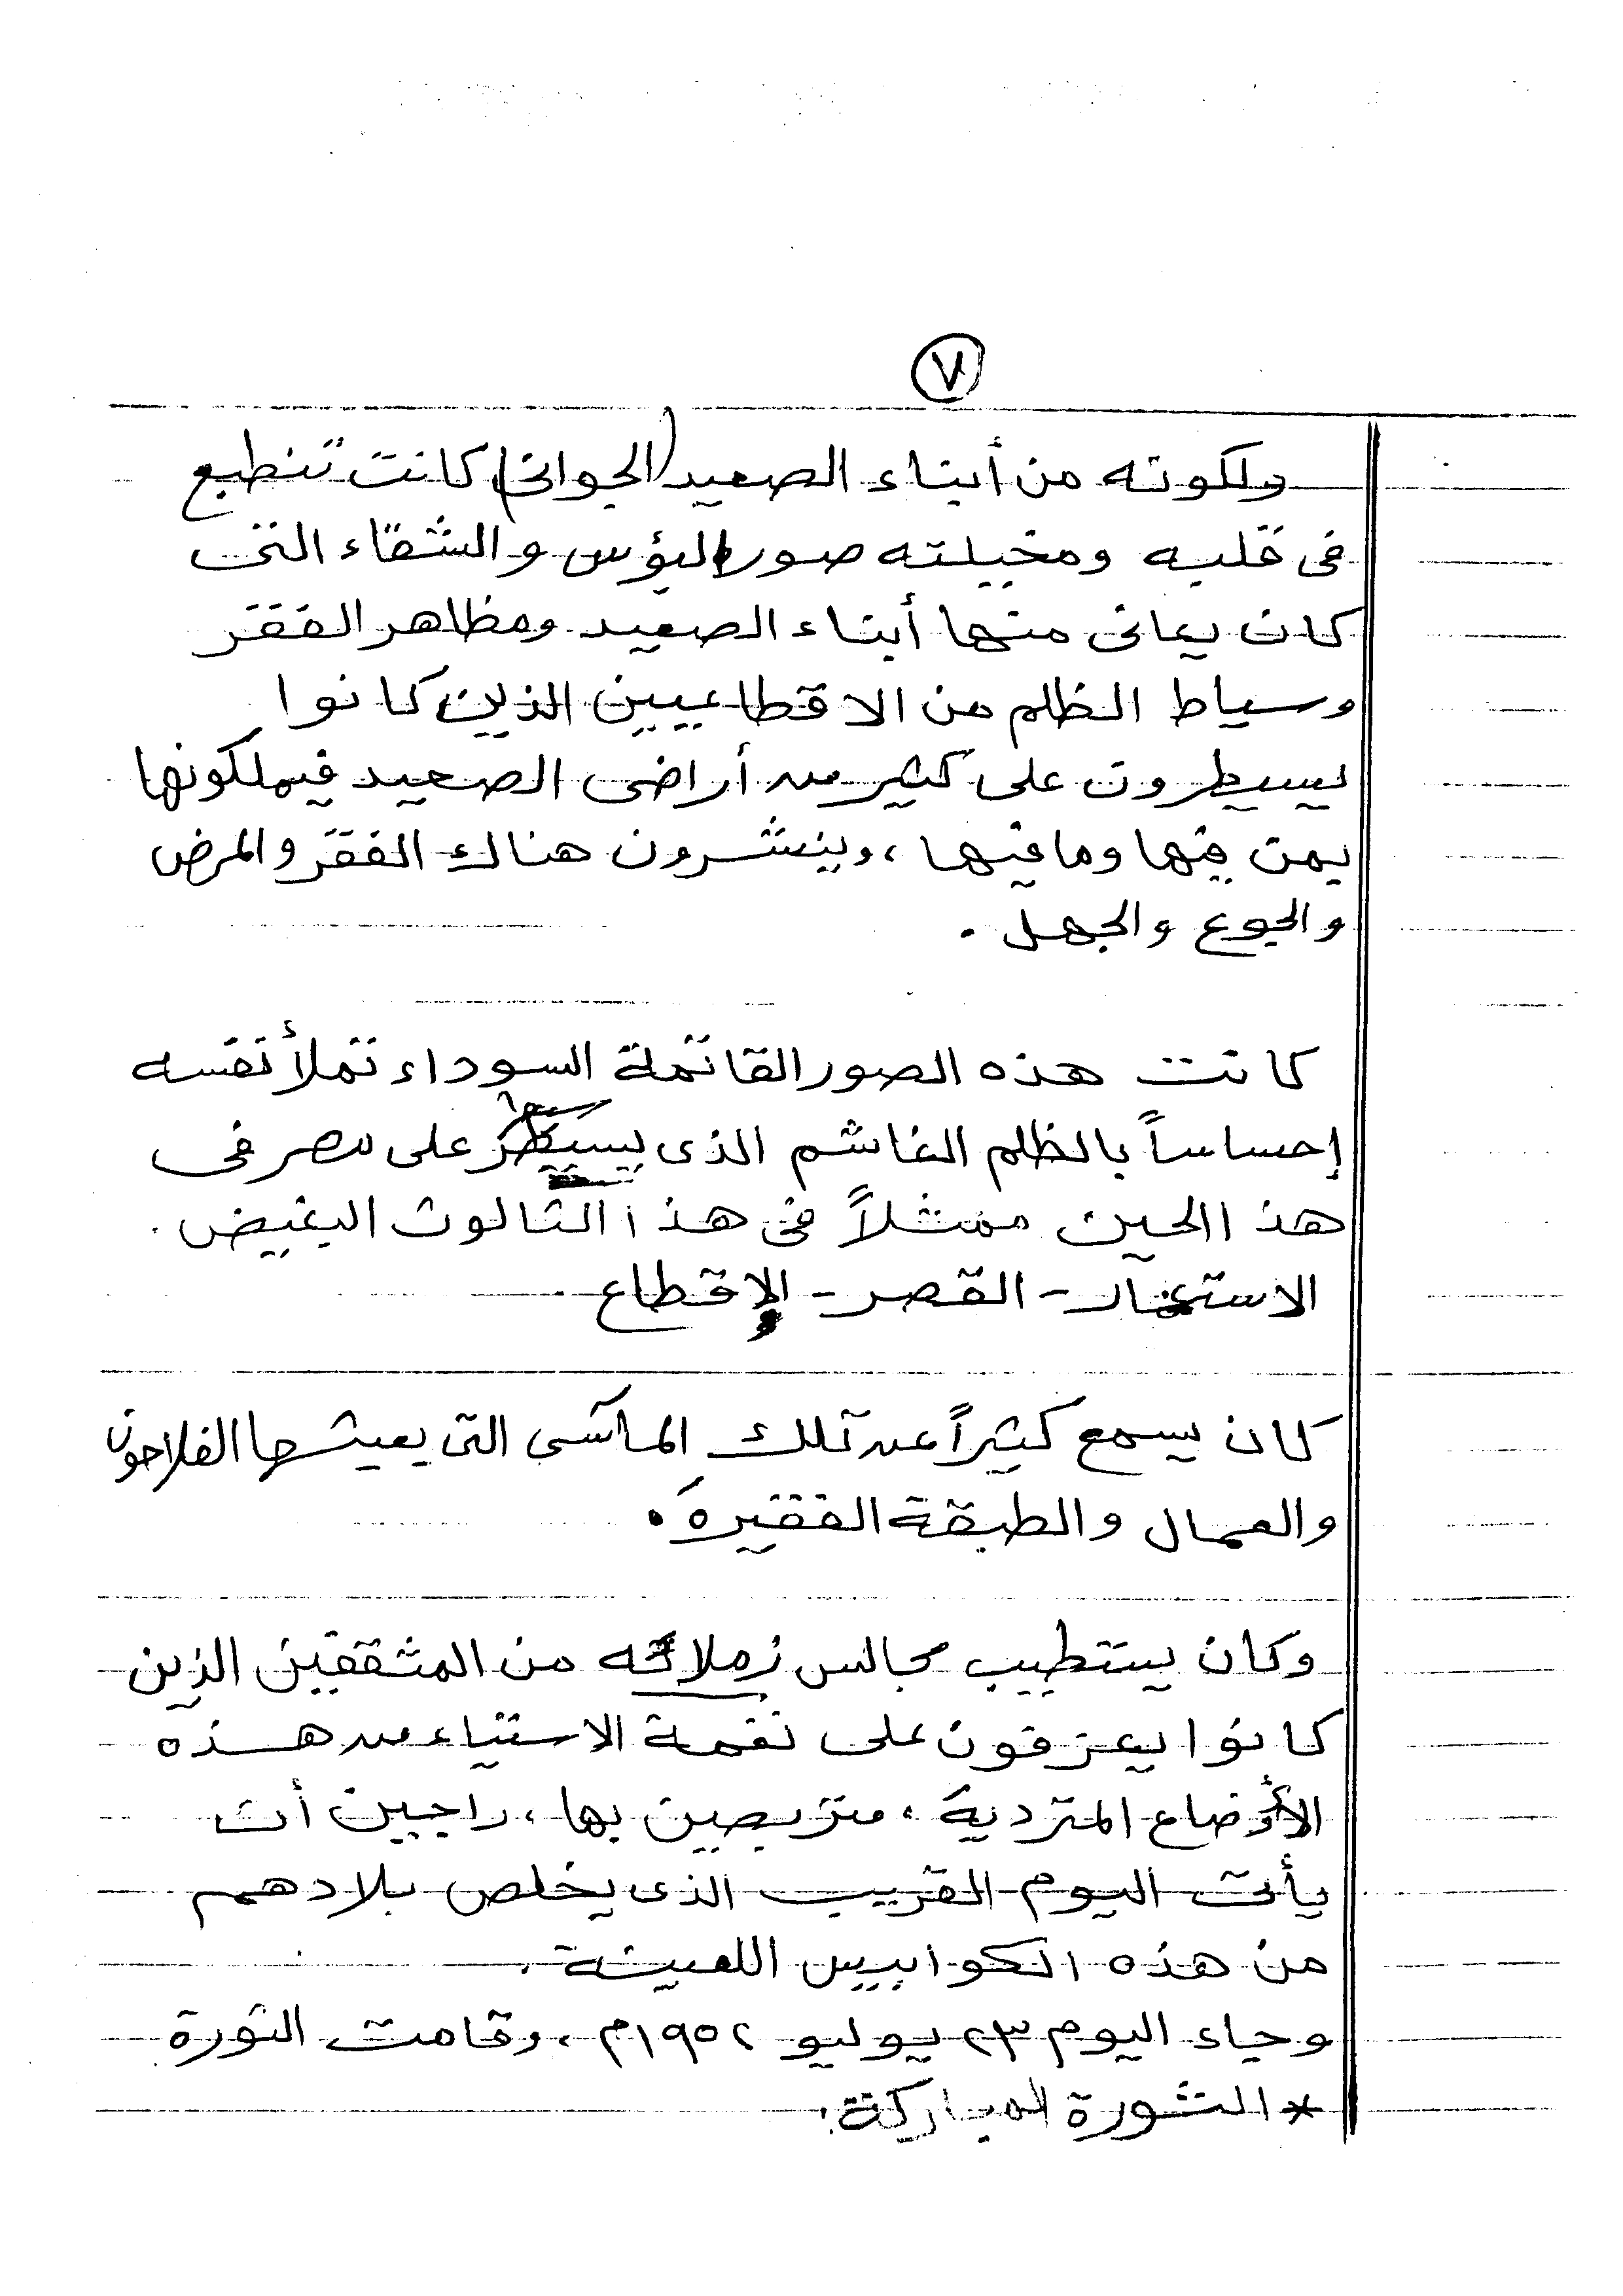 ٧
ولكونه من أبناء الصعيد (الجوانى) كانت تنطبع
فى قلبه ومخيلته صور البؤس والشقاء التى
كان يعانى منها أبناء الصعيد ومظاهر الفقر
وسياط الظلم من الاقطاعيين الذين كانوا
يسيطرون على كثير من أراضى الصعيد فيملكونها
بمن فيها وما فيها، وينشرون هناك الفقر والمرض
والجوع والجهل.
كانت هذه الصور القاتمة السوداء تملأ نفسه
إحساساً بالظلم الغاشم الذى يسيطر على مصر فى
هذا الحين ممثلاً فى هذا الثالوث البغيض.
الاستعمار - القصر - الإقطاع
كان يسمع كثيراً عن تلك المآسى التى يعيشها الفلاحون
والعمال والطبقة الفقيرة.
وكان يستطيب مجالس زملائه من المثقفين الذين
كانوا يعزفون على نغمة الاستياء من هذه
الأوضاع المتردية، متربصين بها، راجين أن
يأتى اليوم القريب الذى يخلص بلادهم
من هذه الكوابيس اللعينة.
وجاء اليوم ٢٣ يوليو ١٩٥٢م، وقامت الثورة
* الثورة المباركة.